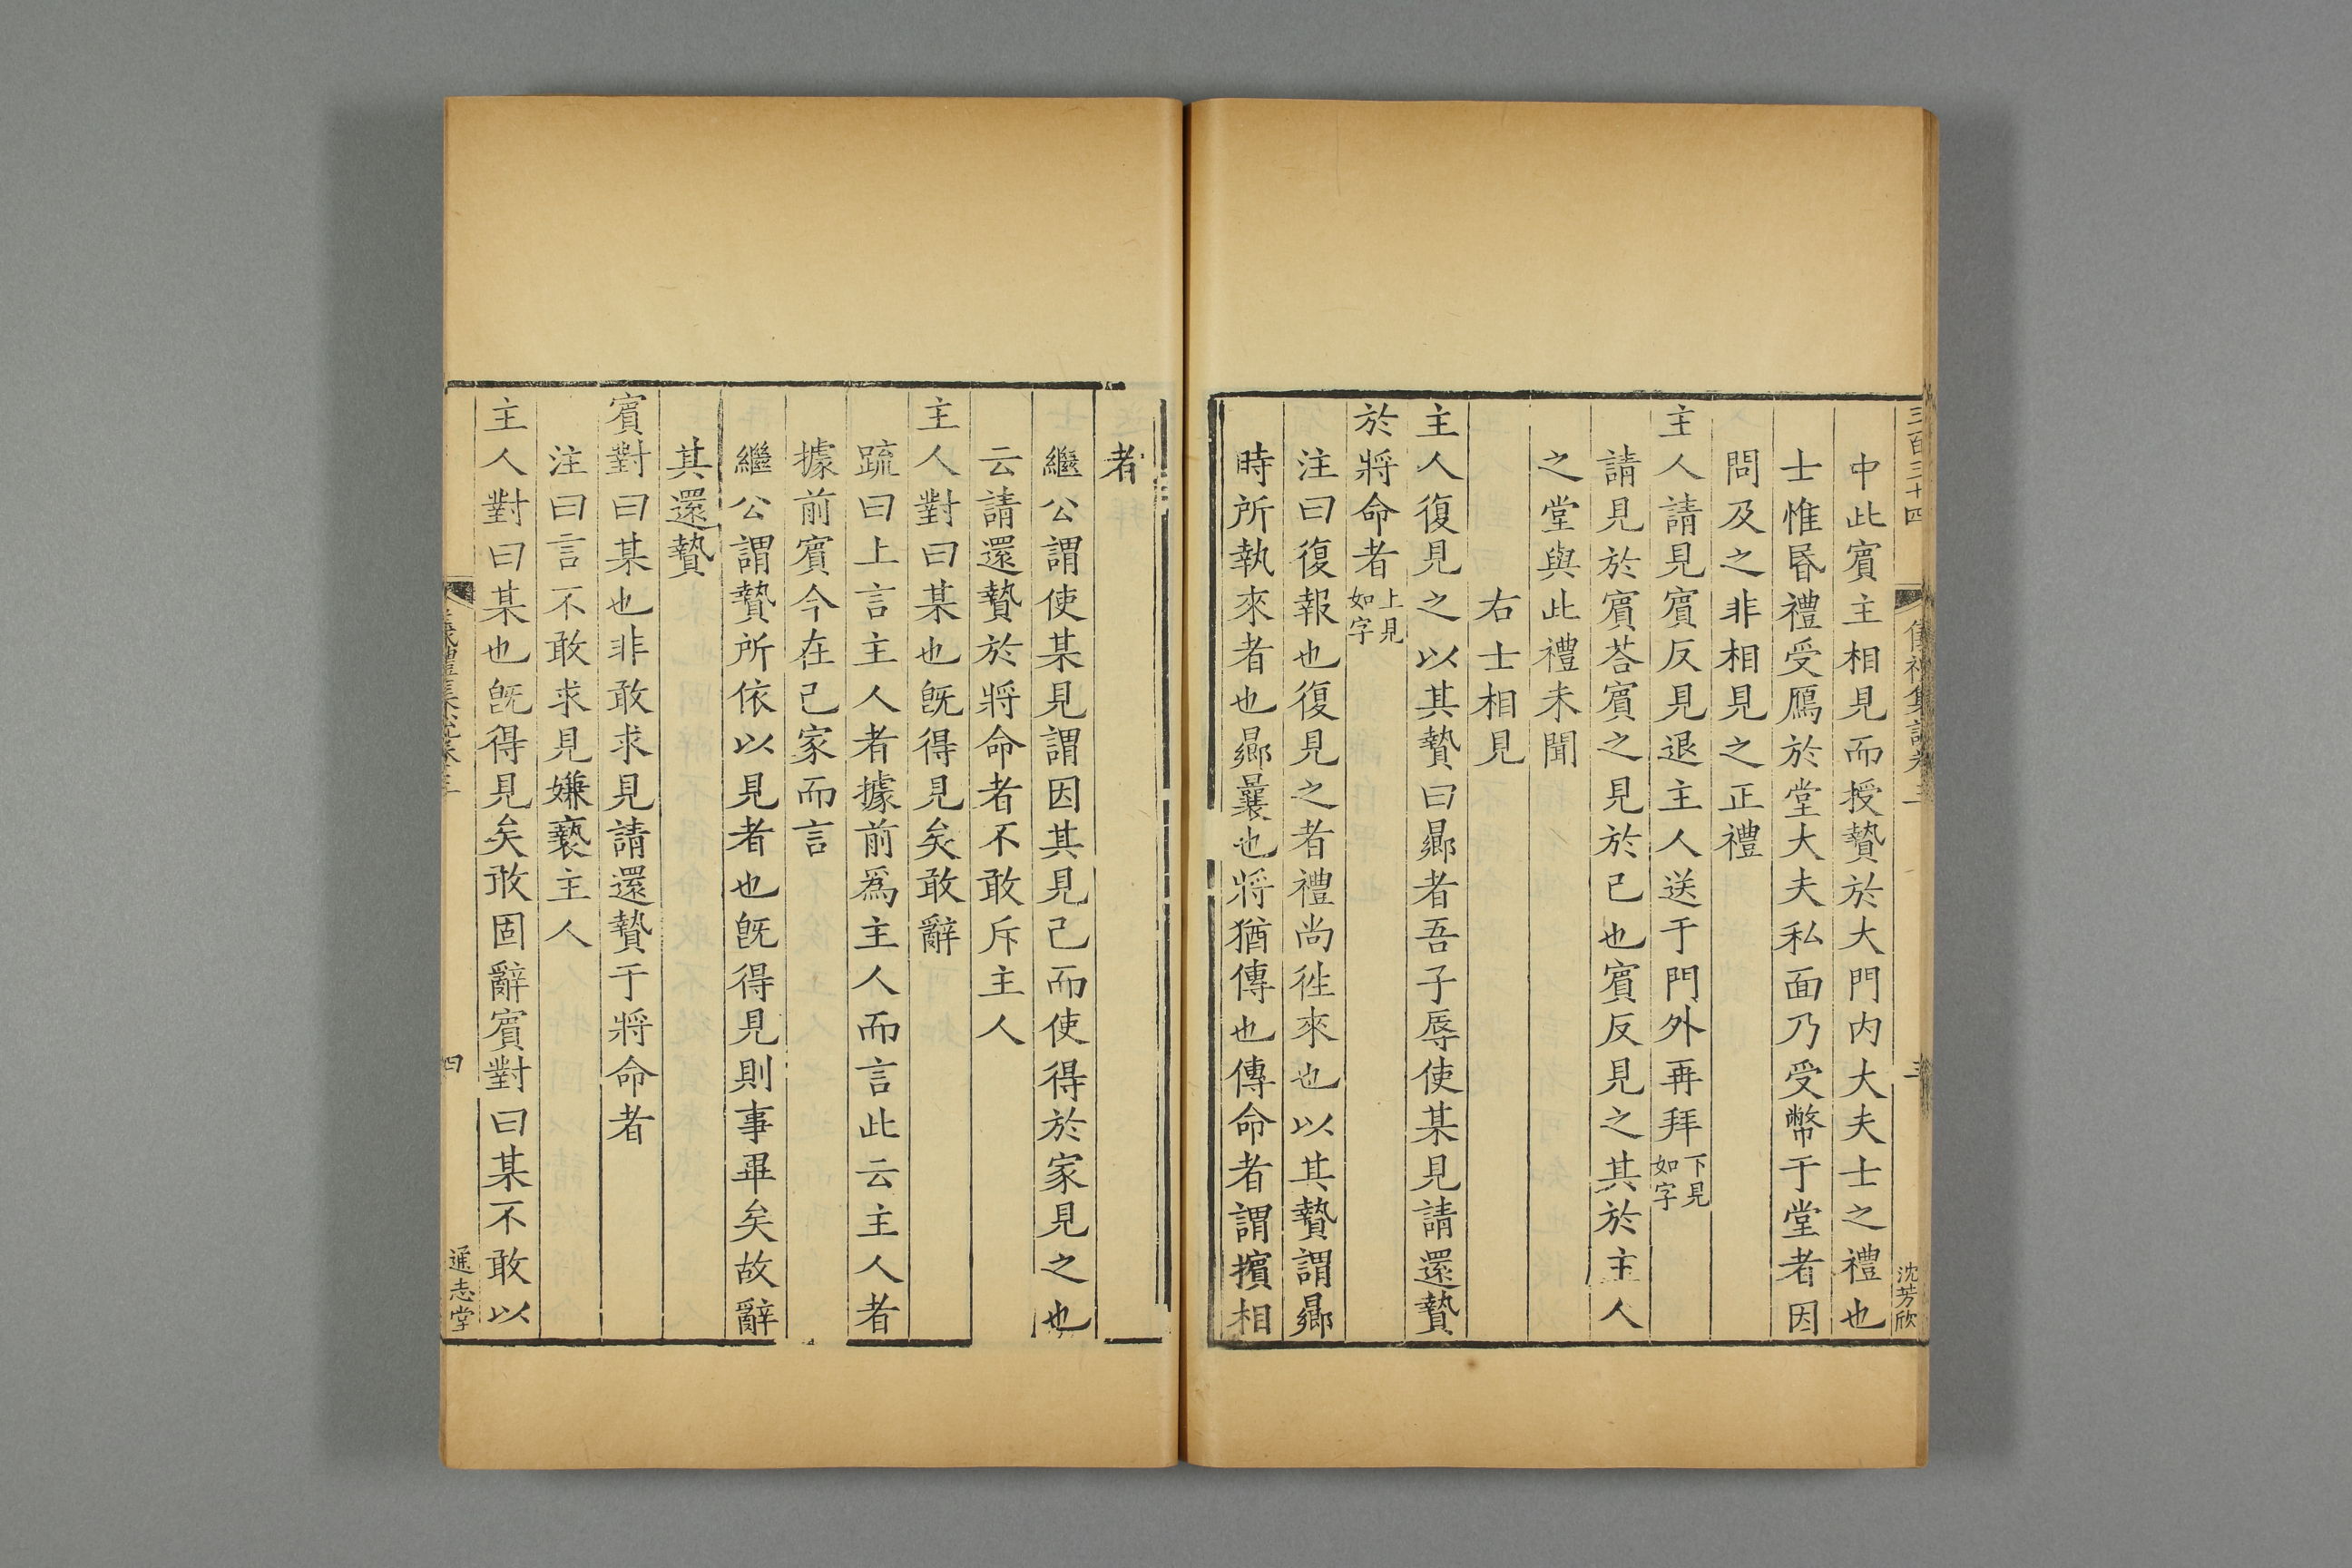 三百三十四
儀禮集說卷三
三
沈芳欣
中此賓主相見而授贄於大門内大夫士之禮也
士惟昬禮受鴈於堂大夫私面乃受幣于堂者因
問及之非相見之正禮
主人請見賓反見退主人送于門外再拜下見如字
請見於賓荅賓之見於己也賓反見之其於主人
之堂與此禮未聞
右士相見
主人復見之以其贄曰曏者吾子辱使某見請還贄
於將命者上見如字
注曰復報也復見之者禮尚徃來也以其贄謂曏
時所執來者也曏曩也將猶傳也傳命者謂擯相
者
繼公謂使某見謂因其見己而使得於家見之也
云請還贄於將命者不敢斥主人
主人對曰某也旣得見矣敢辭
疏曰上言主人者據前爲主人而言此云主人者
據前賓今在己家而言
繼公謂贄所依以見者也旣得見則事畢矣故辭
其還贄
賓對曰某也非敢求見請還贄于將命者
注曰言不敢求見嫌褻主人
主人對曰某也旣得見矣敢固辭賓對曰某不敢以
儀禮集說卷三
四
通志堂